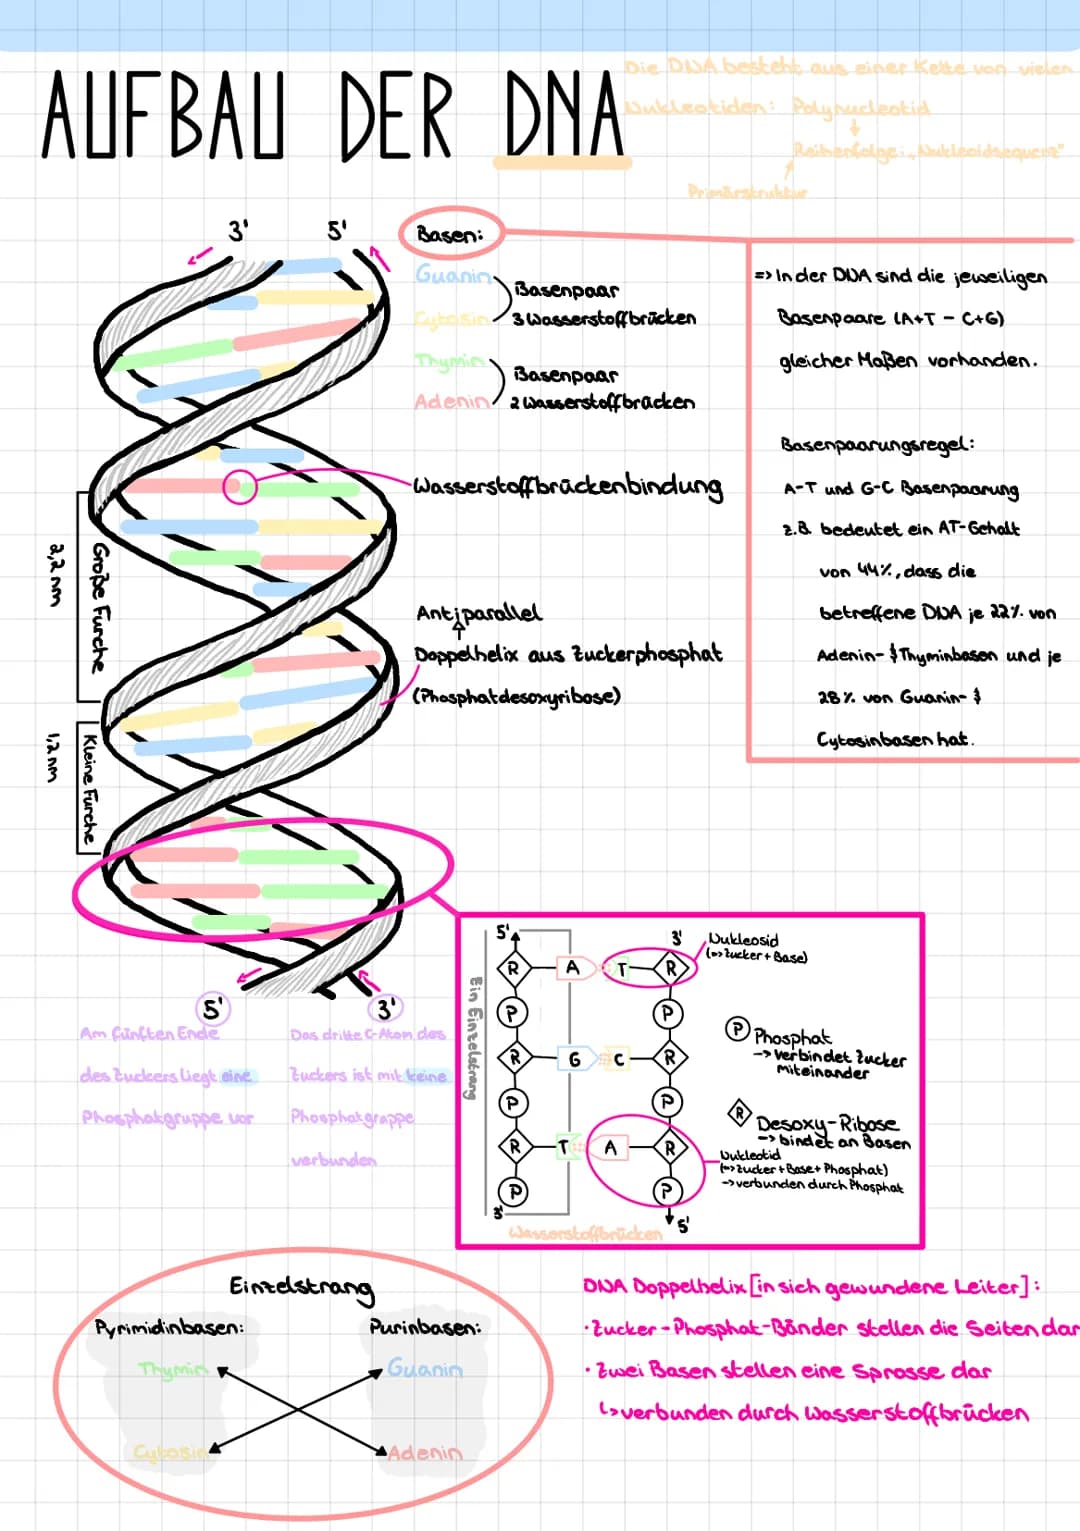 AUFBAU DER DNA
Die DNA besteht aus einer Kette von vielen
Nukleotiden: Polynucleotid
Reihenfolge: „Nukleoidsequenz"
Primärstruktur
3' 5'
Basen:
Guanin
Cytosin
Basenpaar
3 Wasserstoffbrücken
Thymin
Adenin
Basenpaar
2 Wasserstoffbrücken
=> In der DNA sind die jeweiligen
Basenpaare (A+T - C+G)
gleicher Maßen vorhanden.
Basenpaarungsregel:
A-T und G-C Basenpaarung
z.B. bedeutet ein AT-Gehalt
von 44%, dass die
betreffene DNA je 22% von
Adenin- & Thyminbasen und je
28% von Guanin- &
Cytosinbasen hat.
Wasserstoffbrückenbindung
Antiparallel
Doppelhelix aus Zuckerphosphat
(Phosphatdesoxyribose)
Große Furche
2,2 nm
Kleine Furche
1,2 nm
5' 3'
Am fünften Ende
des Zuckers liegt eine
Phosphatgruppe vor
Das dritte C-Atom des
Zuckers ist mit keine
Phosphatgruppe
verbunden
Ein Einzelstrang
5' 3'
R A T R
P P
R G C R
P P
R T A R
P P
3' 5'
Wasserstoffbrücken
Nukleosid
(=> Zucker + Base)
P Phosphat
-> verbindet Zucker
miteinander
R Desoxy-Ribose
-> bindet an Basen
Nukleotid
(=> Zucker + Base + Phosphat)
-> verbunden durch Phosphat
Einzelstrang
Pyrimidinbasen: Purinbasen:
Thymin Guanin
Cytosin Adenin
DNA Doppelhelix [in sich gewundene Leiter]:
· Zucker-Phosphat-Bänder stellen die Seiten dar
· Zwei Basen stellen eine Sprosse dar
↳ verbunden durch Wasserstoffbrücken